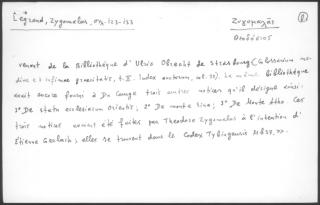 Legrand, Zygomalas, σελ. 123-153
Ζυγομαλᾶς
Θεοδόσιος
venant de la Bibliothèque d'Ulric Obrecht de Strasbourg (Glossarium mediae et infimae graecitatis, t. II. Index auctorum, col. 33). Le même bibliothèque
avait encore fourni à Du Cange trois autres notices qu'il désigne ainsi:
1° De statu ecclesiarum Orientis; 2° De monte Sina; 3° De Monte Atho. Ces
trois notices avaient été faites par Theodose Zygomalas à l'intention d'
Étienne Gerlach; elles se trouvent dans le Codex Tybingensis Mb37.